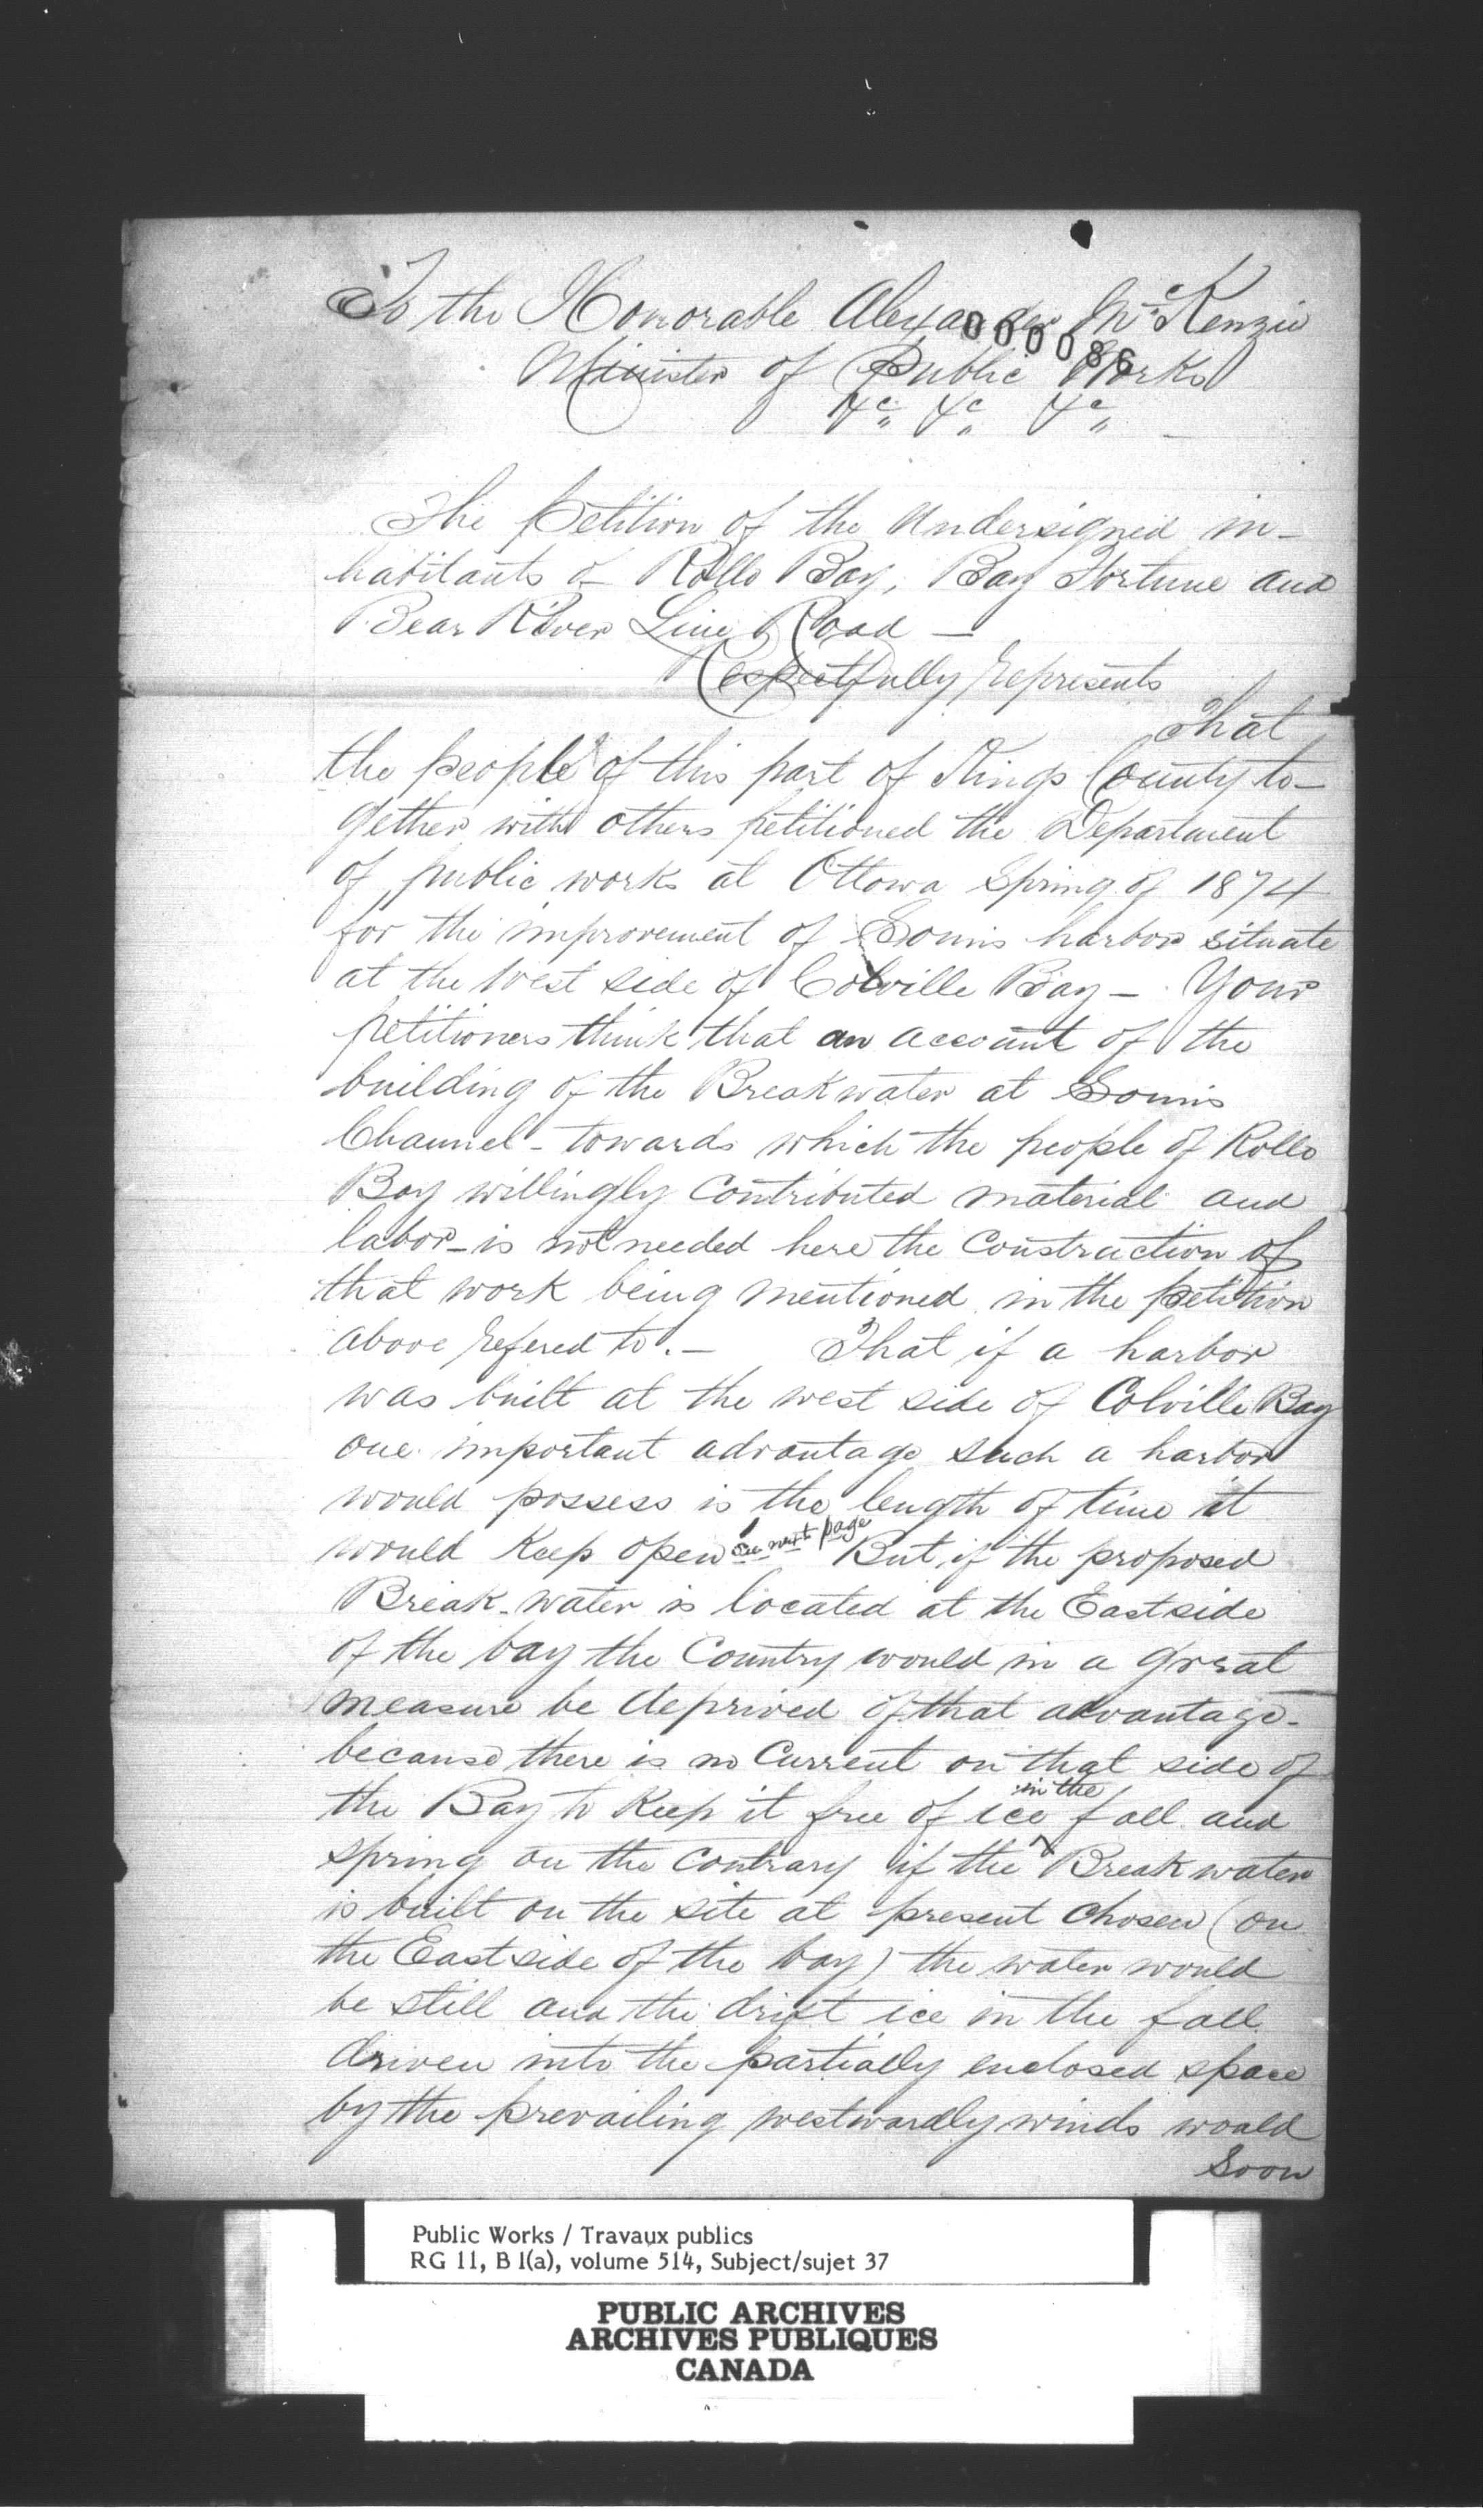 To the Honorable Alexander McKenzie
000086
Minister of Public Works
&c. &c. &c.
The Petition of the Undersigned in-
habitants of Rollo Bay, Bay Fortune and
Bear River Line Road —
Respectfully represents
That
the people of this part of Kings County to-
gether with others petitioned the Department
of public works at Ottowa Spring of 1874
for the improvement of Souris harbor situate
at the West side of Colville Bay — Your
petitioners think that an account of the
building of the Breakwater at Souris
Channel - towards which the people of Rollo
Bay willingly contributed material and
labor - is not needed here the Construction of
that work being mentioned in the petition
above refered to. — That if a harbor
was built at the west side of Colville Bay
one important advantage such a harbor
would possess is the length of time it
would Keep open see next page But if the proposed
Break-water is located at the East side
of the bay the Country would in a great
measure be deprived of that advantage -
because there is no Current on that side of
the Bay to Keep it free of ice in the fall and
spring on the contrary if the Breakwater
is built on the site at present chosen (on
the East side of the bay) the water would
be still and the drift ice in the fall
driven into the partially enclosed space
by the prevailing westwardly winds would
Soon
Public Works / Travaux publics
RG 11, B 1(a), volume 514, Subject/sujet 37
PUBLIC ARCHIVES
ARCHIVES PUBLIQUES
CANADA